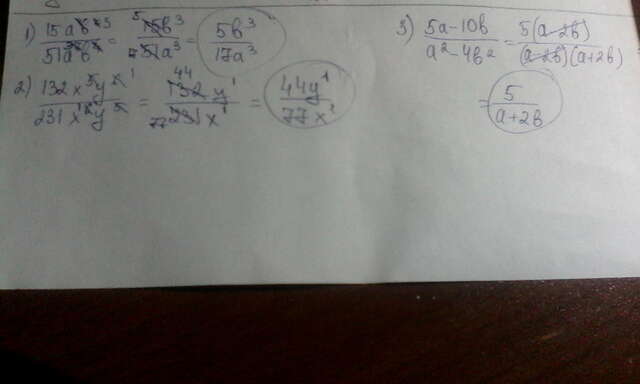 1) 15ab / 51ab = 15b³ / 51a³ = 5b³ / 17a³
2) 132x⁵y / 231xy = 132y¹ / 231x¹ = 44y¹ / 77x¹
3) 5a-10b / a²-4b² = 5(a-2b) / (a-2b)(a+2b)
= 5 / a+2b